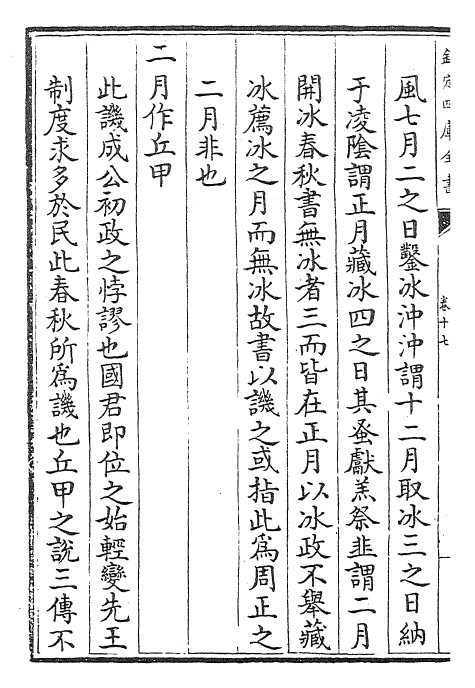 欽定四庫全書
卷十七
風七月二之日鑿冰沖沖謂十二月取冰三之日納
于凌陰謂正月藏冰四之日其蚤獻羔祭韭謂二月
開冰春秋書無冰者三而皆在正月以冰政不舉藏
冰薦冰之月而無冰故書以譏之或指此爲周正之
二月非也
二月作丘甲
此譏成公初政之悖謬也國君即位之始輕變先王
制度求多於民此春秋所爲譏也丘甲之說三傳不